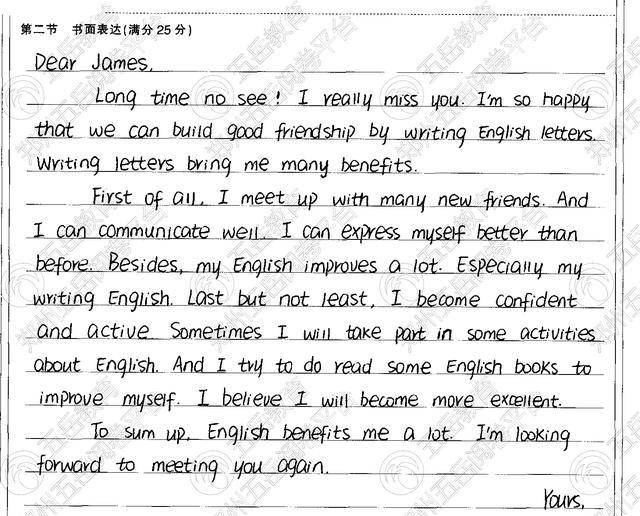 第二节 书面表达(满分25分)
Dear James,
Long time no see! I really miss you. I'm so happy
that we can build good friendship by writing English letters.
Writing letters bring me many benefits.
First of all, I meet up with many new friends. And
I can communicate well. I can express myself better than
before. Besides, my English improves a lot. Especially my
writing English. Last but not least, I become confident
and active. Sometimes I will take part in some activities
about English. And I try to do read some English books to
improve myself. I believe I will become more excellent.
To sum up, English benefits me a lot. I'm looking
forward to meeting you again.
Yours,